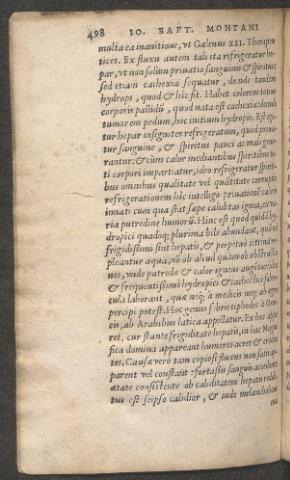 498 IO. BAPT. MONTANI
multa ea inanitione, vt Galenus XII. Therapeu
tices. Ex fluxu autem tali ita refrigeratur he-
par, vt non solum priuatio sanguinis & spiritus
sed etiam cachexia sequatur, deinde tandem
hydrops, quod & hic fit. Habet colorem totius
corporis pallidũ, quod nata est cachexia: deinde
tumorem pedum, hoc initium hydropis. Est igi
tur hepar insigniter refrigeratum, quod priuat
tur sanguine, & spiritus pauci ac male
rantur: & cùm calor mediantibus spiritibus
ti corpori impartiatur, ideo refrigeratur
bus omnibus qualitate vel quãtitate corruptis
refrigerationem hic intelligo priuationẽ caloris
innati: cum qua stat sæpe caliditas ignea,
ria putredine humorũ. Hinc est quod quidã hy-
dropici quãdoq; plurima bile abundant, quãuis
frigidissimi sint hepatis, & perpetuò
pleantur aqua, nõ ob aliud quàm ob obstructio
nes, vnde putredo & calor igneus augetur: ideo
& frequentissimè hydropici & cachectici febri-
cula laborant, quæ neq; à medicis neq; ab ægris
percipi potest. Hoc genus febris tiphodes à Græ-
cis, ab Arabibus latica appellatur. Ex hoc appa
ret, cur stante frigiditate hepatis, in hac Magni
fica domina appareant humores acres &
tes. Causæ verò tam copiosi fluxus non satis ap-
parent vel constant: fortassis sanguis accedente
ætate consistente ob caliditatem hepatis reddi-
tus est seipso calidior, & inde melancholicus